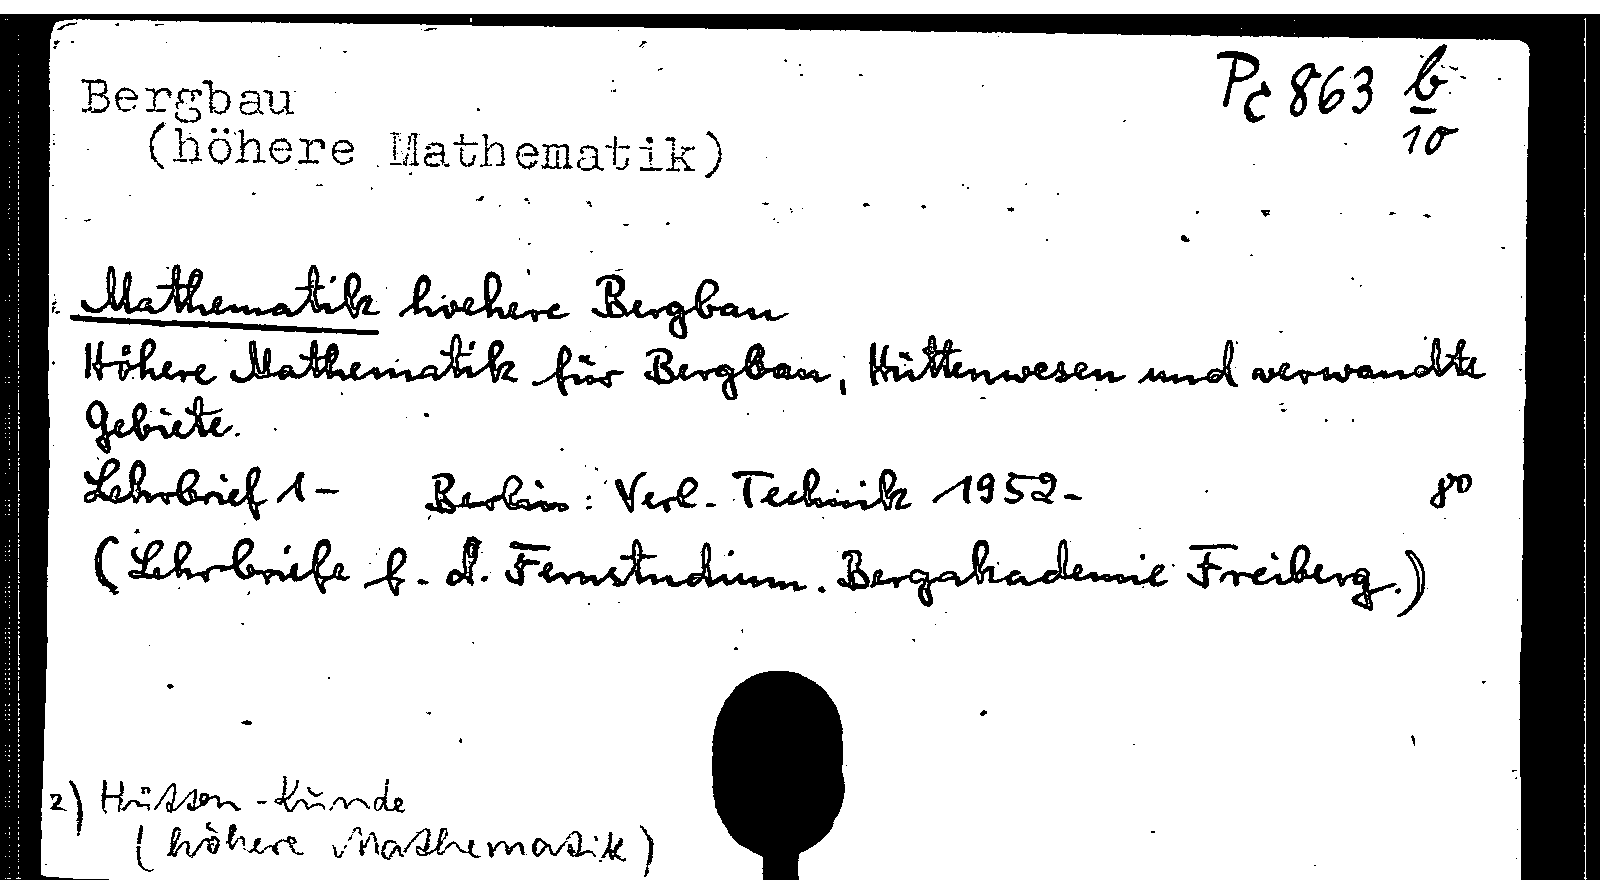 Bergbau
(höhere Mathematik)
Pc 863 b/10
Mathematik hoehere Bergbau
Höhere Mathematik für Bergbau, Hüttenwesen und verwandte
Gebiete.
Lehrbrief 1- Berlin: Verl. Technik 1952- 8°
(Lehrbriefe f. d. Fernstudium. Bergakademie Freiberg.)
2) Hütten-Kunde
(höhere Mathematik)